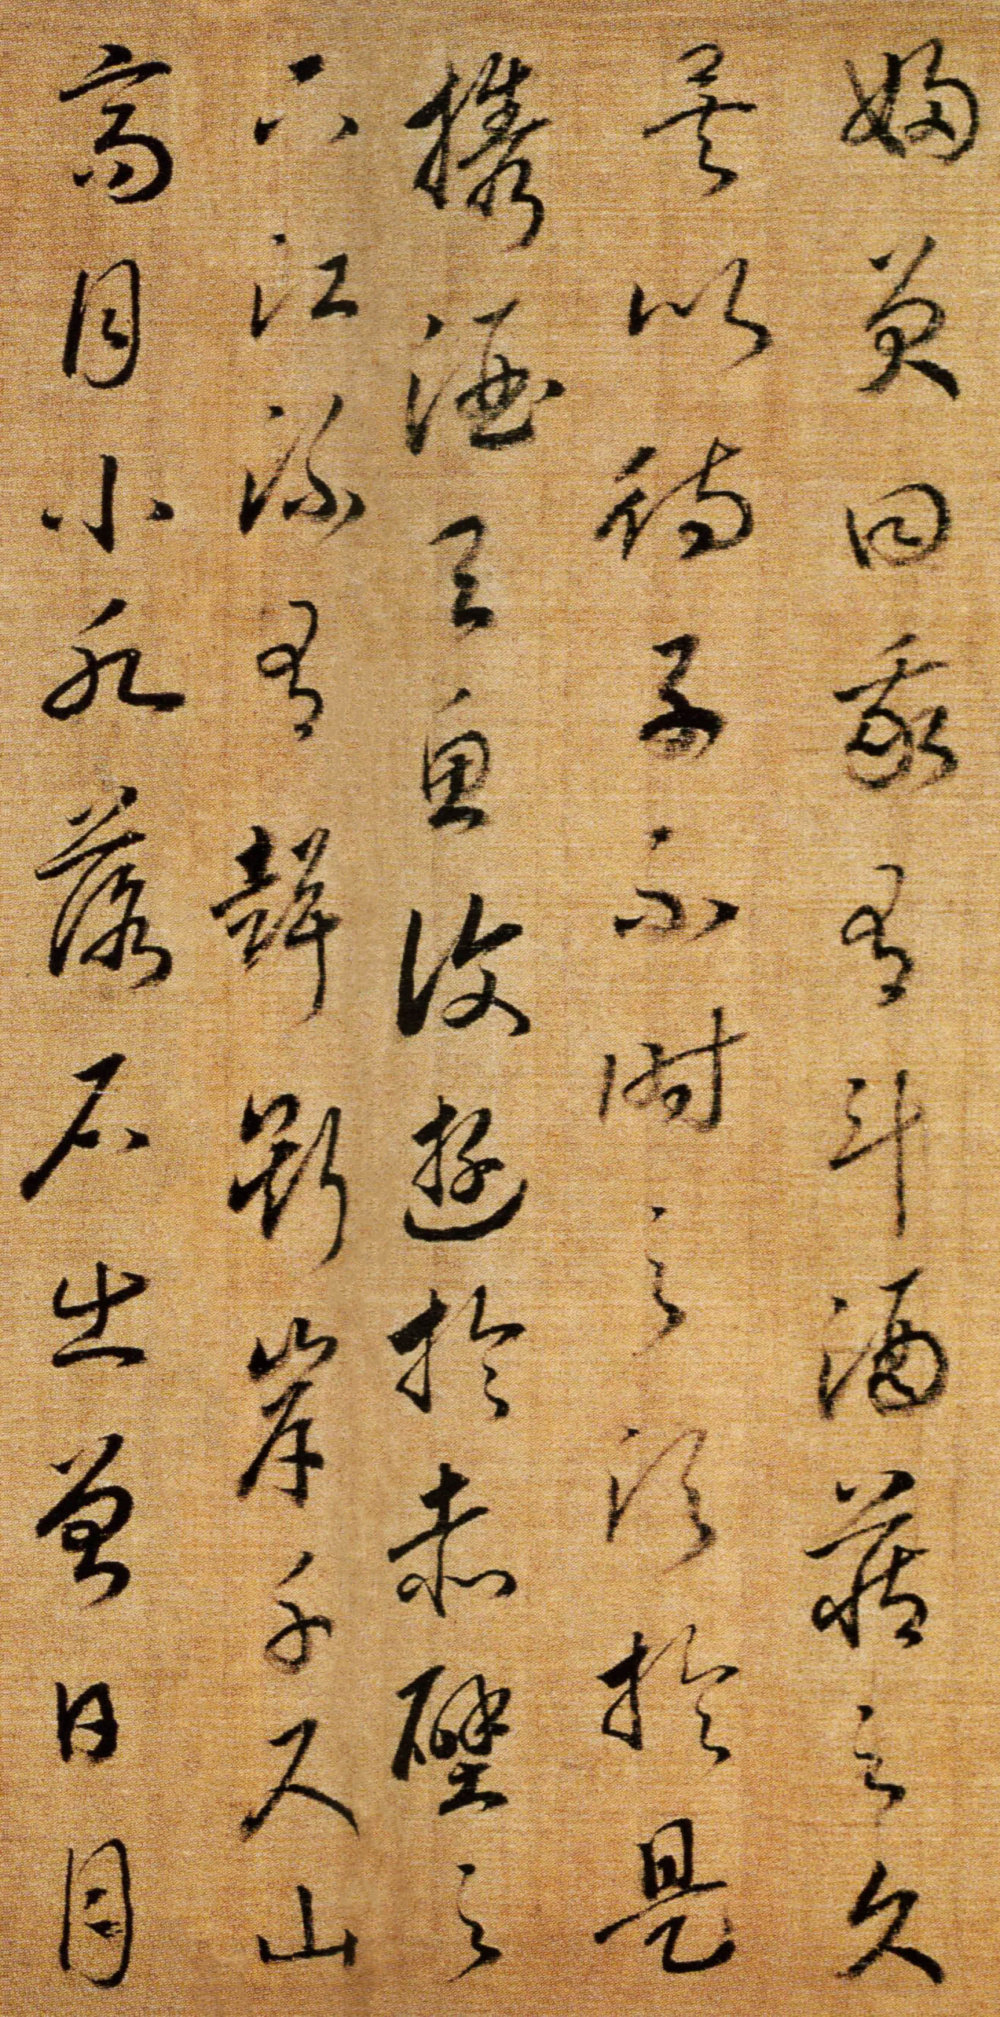 婦曰我有斗酒藏之久
矣以待子不時之須於是
攜酒与魚復遊於赤壁之
下江流有聲斷岸千尺山
高月小水落石出曾日月